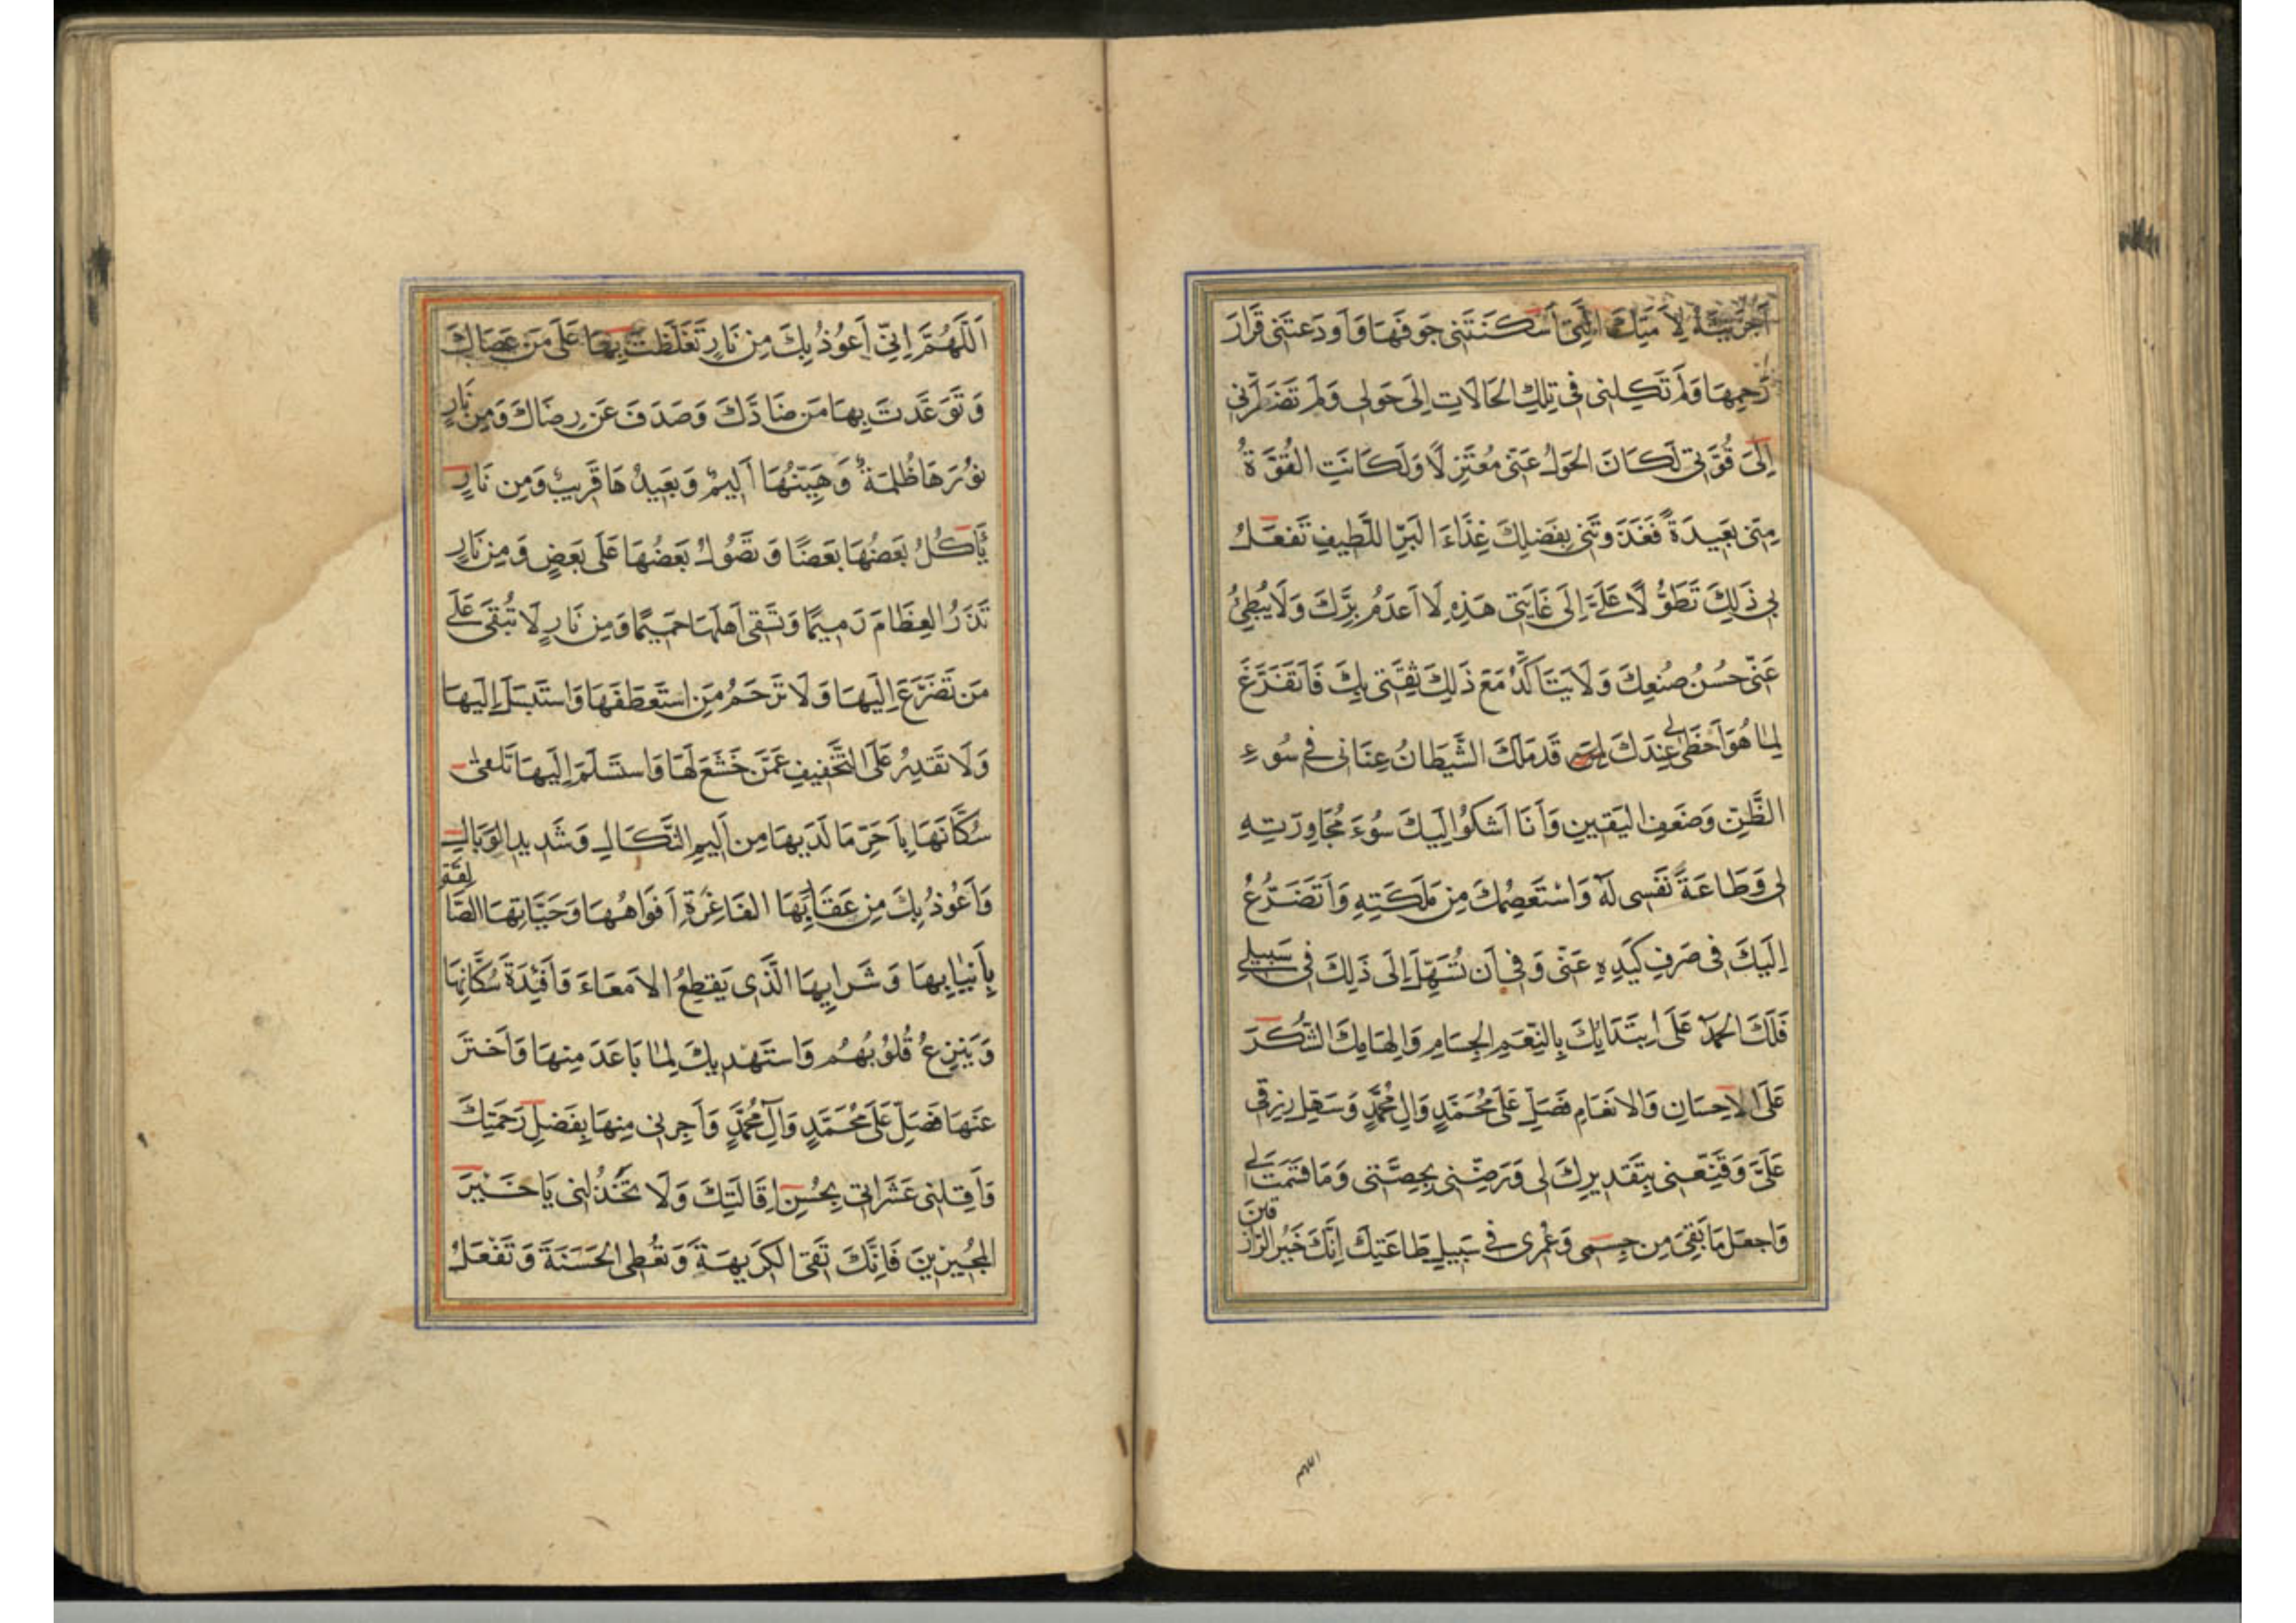 أَجْرَيْتَهُ لِأَمَتِكَ الَّتِي أَسْكَنْتَنِي جَوْفَهَا وَأَوْدَعْتَنِي قَرَارَ
رَحِمِهَا وَلَمْ تَكِلْنِي فِي تِلْكَ الْحَالَاتِ إِلَى حَوْلِي وَلَمْ تَضْطَرَّنِي
إِلَى قُوَّتِي لَكَانَ الْحَوْلُ عَنِّي مُعْتَزِلًا وَلَكَانَتِ الْقُوَّةُ
مِنِّي بَعِيدَةً فَغَذَوْتَنِي بِفَضْلِكَ غِذَاءَ الْبَرِّ اللَّطِيفِ تَفْعَلُ
بِي ذَلِكَ تَطَوُّلًا عَلَيَّ إِلَى غَايَتِي هَذِهِ لَا أَعْدَمُ بِرَّكَ وَلَا يُبْطِئُ
عَنِّي حُسْنُ صُنْعِكَ وَلَا يَتَأَكَّدُ مَعَ ذَلِكَ ثِقَتِي بِكَ فَأَتَفَرَّغَ
لِمَا هُوَ أَحْظَى لِي عِنْدَكَ قَدْ مَلَكَ الشَّيْطَانُ عِنَانِي فِي سُوءِ
الظَّنِّ وَضَعْفِ الْيَقِينِ وَأَنَا أَشْكُو إِلَيْكَ سُوءَ مُجَاوَرَتِهِ
لِي وَطَاعَةَ نَفْسِي لَهُ وَأَسْتَعْصِمُكَ مِنْ مَلَكَتِهِ وَأَتَضَرَّعُ
إِلَيْكَ فِي صَرْفِ كَيْدِهِ عَنِّي وَفِي أَنْ تُسَهِّلَ إِلَى ذَلِكَ فِي سَبِيلِي
فَلَكَ الْحَمْدُ عَلَى ابْتِدَائِكَ بِالنِّعَمِ الْجِسَامِ وَإِلْهَامِكَ الشُّكْرَ
عَلَى الْإِحْسَانِ وَالْإِنْعَامِ فَصَلِّ عَلَى مُحَمَّدٍ وَآلِ مُحَمَّدٍ وَسَهِّلْ رِزْقِي
عَلَيَّ وَقَنِّعْنِي بِتَقْدِيرِكَ لِي وَرَضِّنِي بِحِصَّتِي وَمَا قَسَمْتَ لِي
وَاجْعَلْ مَا بَقِيَ مِنْ جِسْمِي وَعُمْرِي فِي سَبِيلِ طَاعَتِكَ إِنَّكَ خَيْرُ الرَّازِقِينَ
اللهم
اَللَّهُمَّ إِنِّي أَعُوذُ بِكَ مِنْ نَارٍ تَغَلَّظْتَ بِهَا عَلَى مَنْ عَصَاكَ
وَتَوَعَّدْتَ بِهَا مَنْ ضَادَّكَ وَصَدَفَ عَنْ رِضَاكَ وَمِنْ نَارٍ
نُورُهَا ظُلْمَةٌ وَهَيِّنُهَا أَلِيمٌ وَبَعِيدُهَا قَرِيبٌ وَمِنْ نَارٍ
يَأْكُلُ بَعْضُهَا بَعْضًا وَتَصُولُ بَعْضُهَا عَلَى بَعْضٍ وَمِنْ نَارٍ
تَذَرُ الْعِظَامَ رَمِيمًا وَتَسْقِي أَهْلَهَا حَمِيمًا وَمِنْ نَارٍ لَا تُبْقِي عَلَى
مَنْ تَضَرَّعَ إِلَيْهَا وَلَا تَرْحَمُ مَنِ اسْتَعْطَفَهَا وَاسْتَبْسَلَ إِلَيْهَا
وَلَا تَقْدِرُ عَلَى التَّخْفِيفِ عَمَّنْ خَشَعَ لَهَا وَاسْتَسْلَمَ إِلَيْهَا تَلْقَى
سُكَّانَهَا بِأَحَرِّ مَا لَدَيْهَا مِنْ أَلِيمِ النَّكَالِ وَشَدِيدِ الْوَبَالِ
وَأَعُوذُ بِكَ مِنْ عَقَارِبِهَا الْفَاغِرَةِ أَفْوَاهُهَا وَحَيَّاتِهَا الصَّالِقَةِ
بِأَنْيَابِهَا وَشَرَابِهَا الَّذِي يَقْطَعُ الْأَمْعَاءَ وَأَفْئِدَةَ سُكَّانِهَا
وَيَنْزِعُ قُلُوبَهُمْ وَأَسْتَهْدِيكَ لِمَا بَاعَدَ مِنْهَا وَأَخَّرَ
عَنْهَا فَصَلِّ عَلَى مُحَمَّدٍ وَآلِ مُحَمَّدٍ وَأَجِرْنِي مِنْهَا بِفَضْلِ رَحْمَتِكَ
وَأَقِلْنِي عَثَرَاتِي بِحُسْنِ إِقَالَتِكَ وَلَا تَخْذُلْنِي يَا خَيْرَ
الْمُجِيرِينَ فَإِنَّكَ تَقِي الْكَرِيهَةَ وَتُعْطِي الْحَسَنَةَ وَتَفْعَلُ